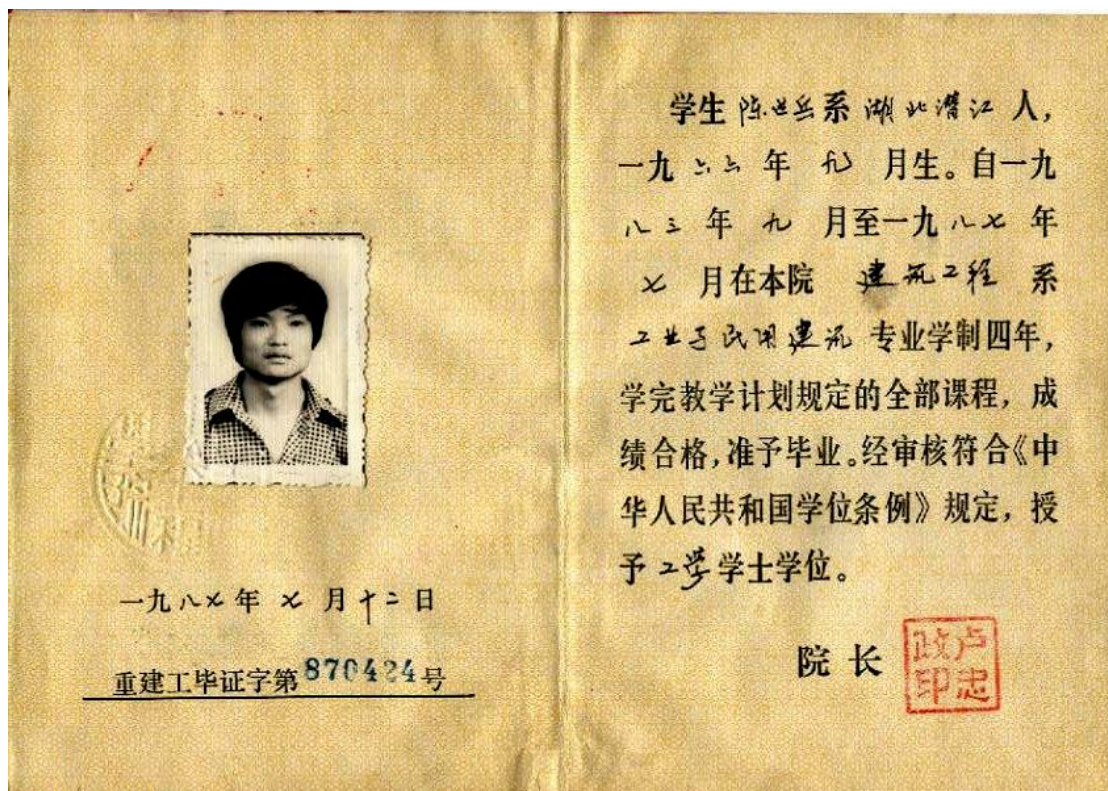 一九八七年七月十二日
重建工毕证字第870424号
学生陈世兵系湖北潜江人，
一九六六年九月生。自一九
八三年九月至一九八七年
七月在本院建筑工程系
工业与民用建筑专业学制四年，
学完教学计划规定的全部课程，成
绩合格，准予毕业。经审核符合《中
华人民共和国学位条例》规定，授
予工学学士学位。
院长
卢忠政印